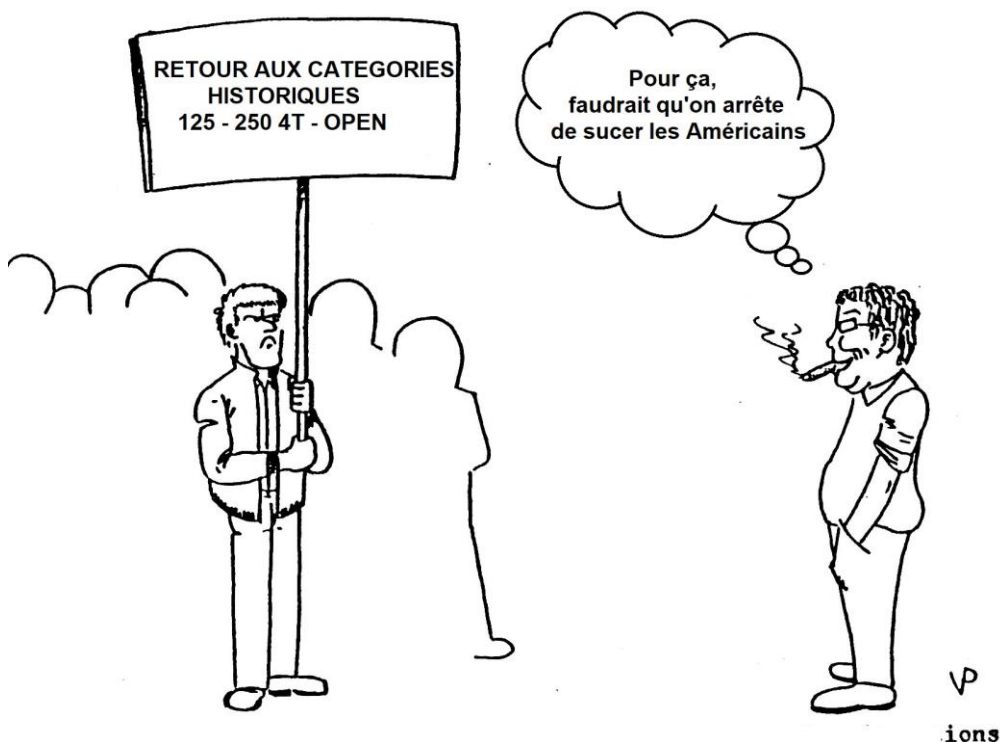 RETOUR AUX CATEGORIES
HISTORIQUES
125 - 250 4T - OPEN
Pour ça,
faudrait qu'on arrête
de sucer les Américains
VP
ions